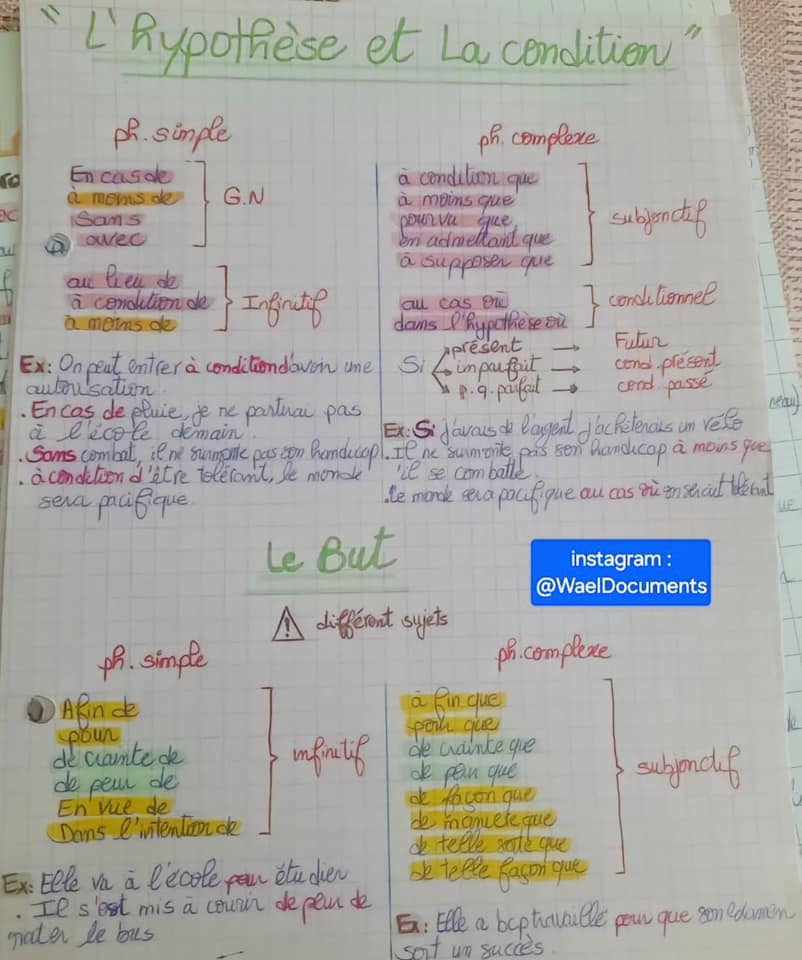 " L'hypothèse et La condition "
ph. simple
En cas de
à moins de
Sans
avec
G.N
au lieu de
à condition de
à moins de
Infinitif
Ex: On peut entrer à condition d'avoir une
autorisation.
. En cas de pluie, je ne partirai pas
à l'école demain.
. Sans combat, il ne surmonte pas son handicap.
. à condition d'être tolérant, le monde
sera pacifique.
ph. complexe
à condition que
à moins que
pourvu que
en admettant que
à supposer que
subjonctif
au cas où
dans l'hypothèse où
conditionnel
Si
présent → Futur
imparfait → cond. présent
p.q. parfait → cond passé
Ex: Si j'avais de l'argent j'achèterais un vélo
. Il ne surmonte pas son handicap à moins que
'il se combatte.
. Le monde sera pacifique au cas où on serait tolérant
Le But
instagram :
@WaelDocuments
différent sujets
ph. simple
Afin de
pour
de crainte de
de peur de
En vue de
Dans l'intention de
infinitif
Ex: Elle va à l'école pour étudier
. Il s'est mis à courir de peur de
rater le bus
ph. complexe
à fin que
pour que
de crainte que
de peur que
de façon que
de manière que
de telle sorte que
de telle façon que
subjonctif
Ex: Elle a bcp travaillé pour que son examen
soit un succès.